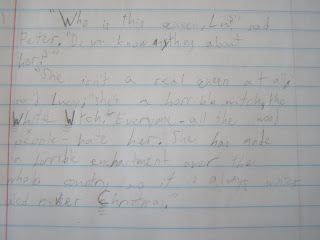 "Who is this queen, Lu?" said
Peter. "Do you know anything about
her?"
"She isn't a real queen at all,"
said Lucy, "she's a horrible witch, the
White Witch. Everyone - all the wood
people - hate her. She has made
a horrible enchantment over the
whole country so it is always winter
and never Christmas."